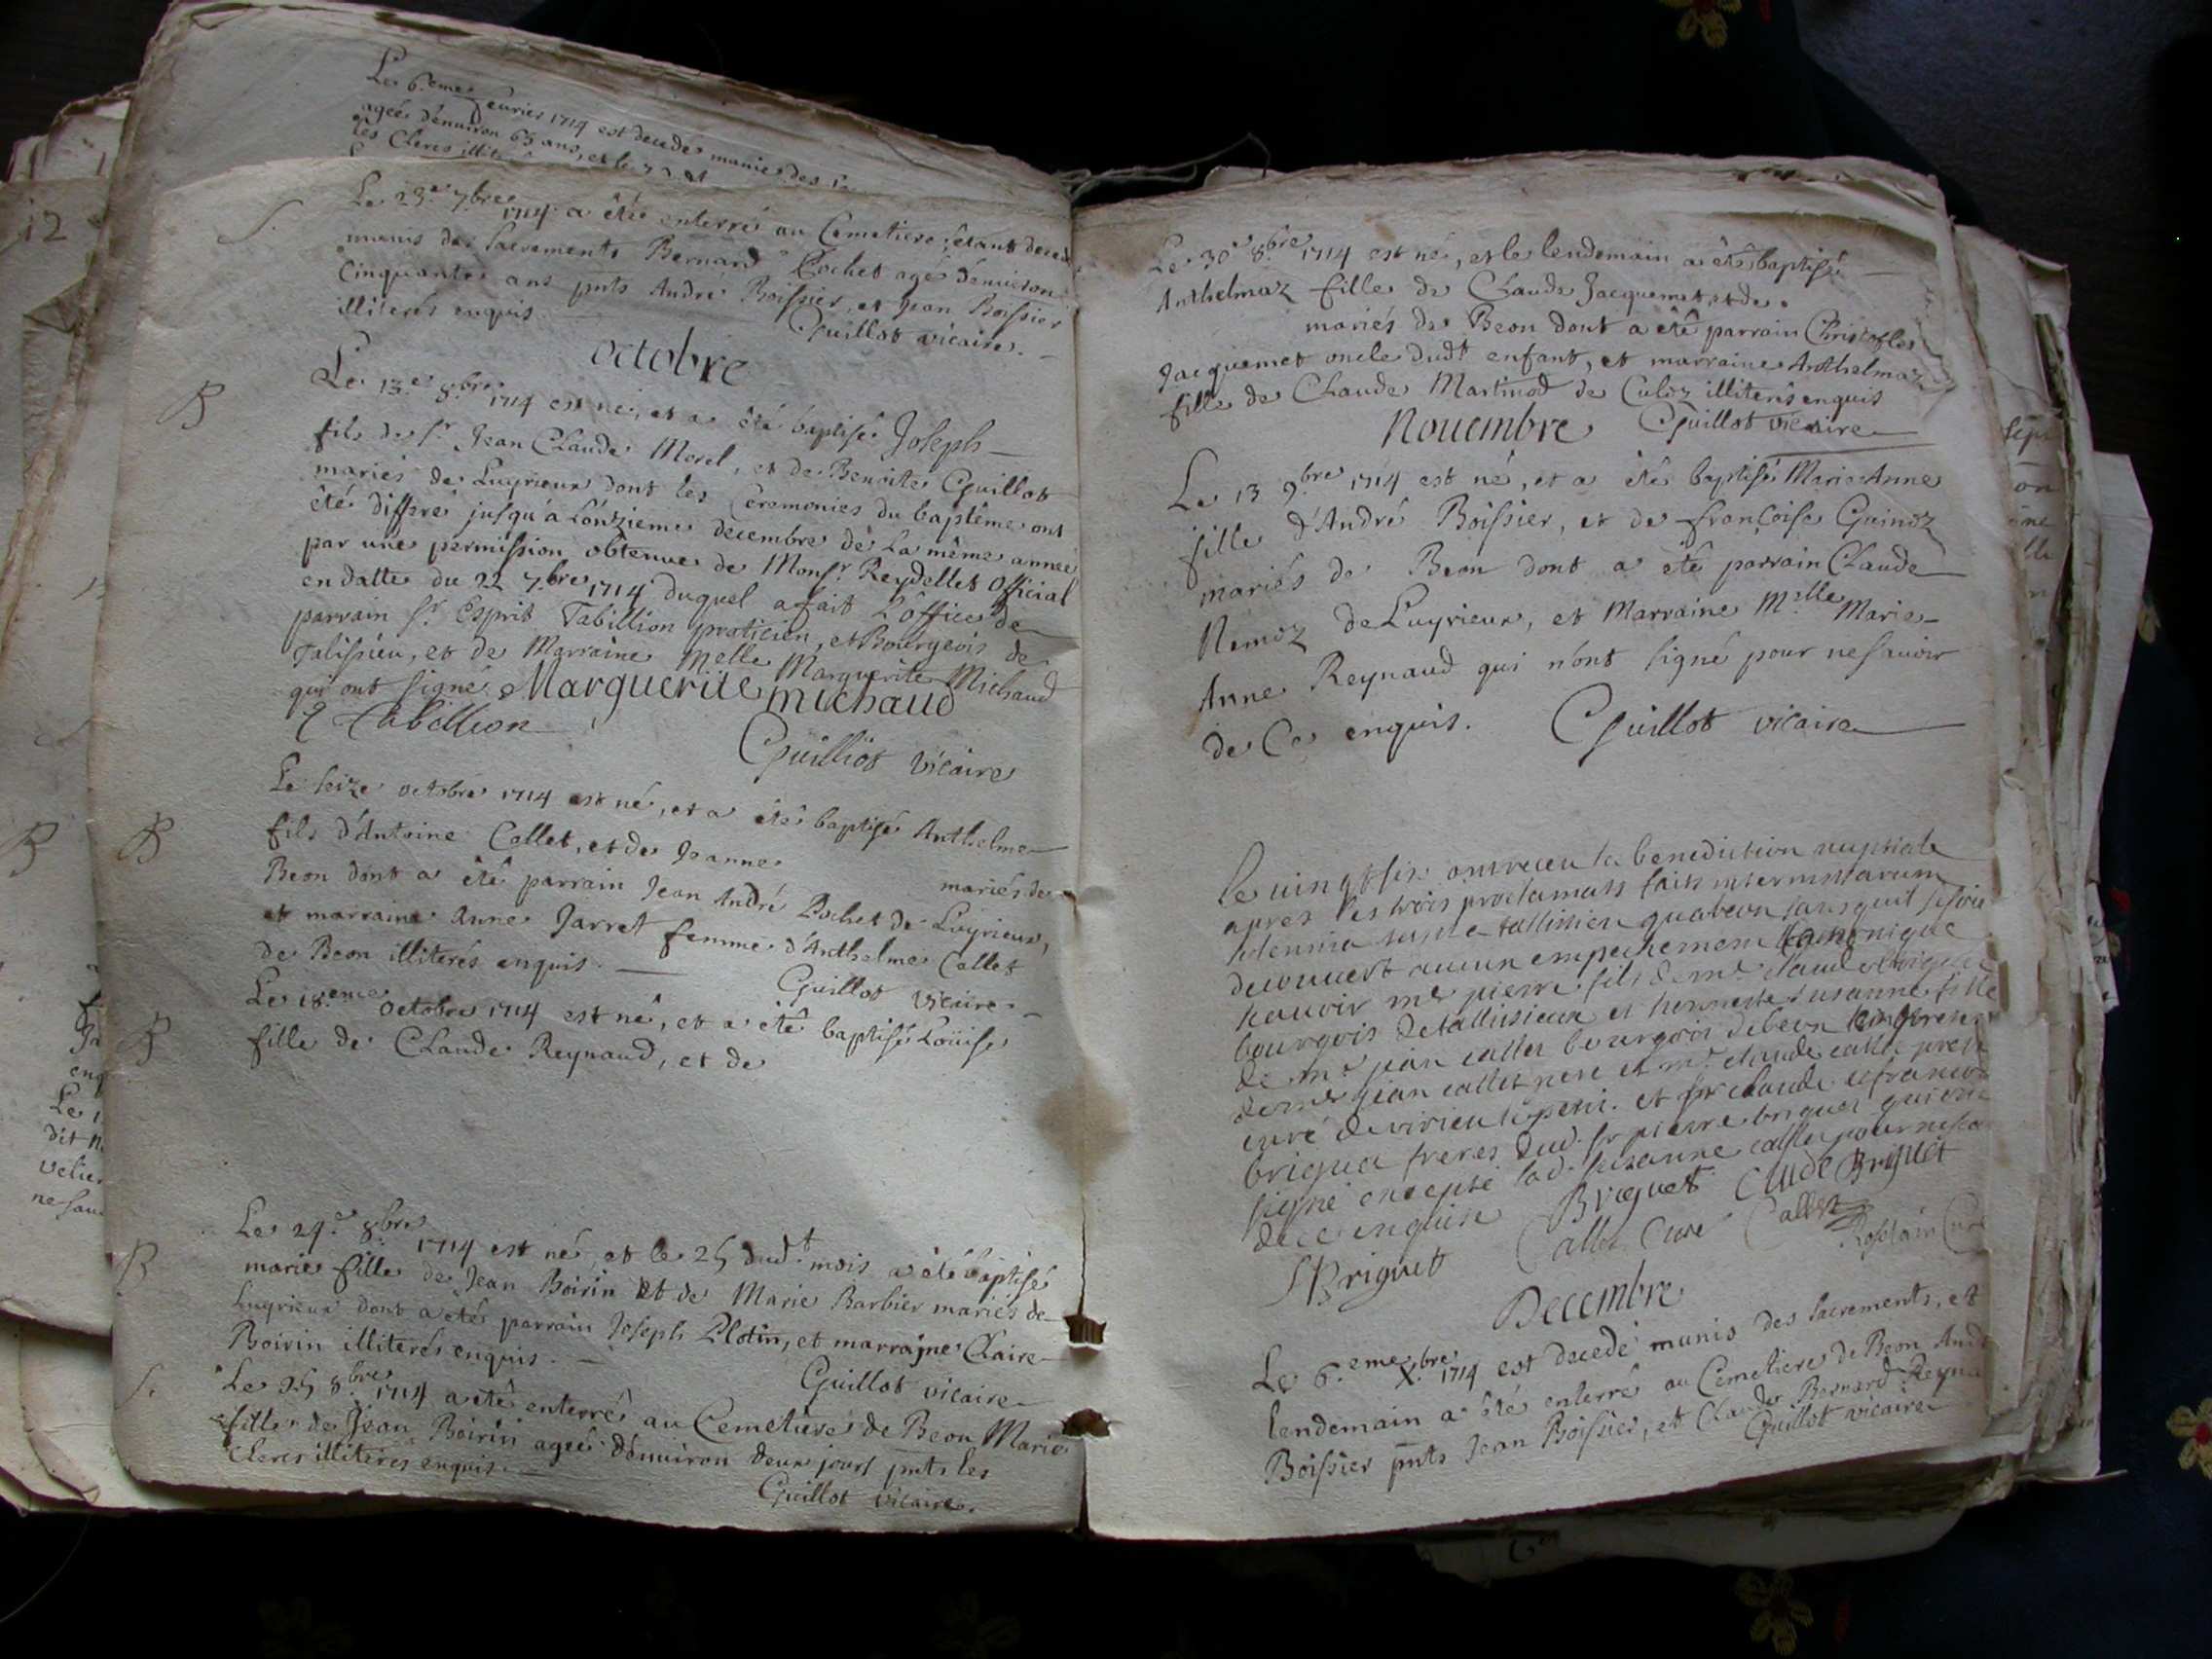 Le 6.eme feurier 1714 est decedé munie des
agée d'enuiron 65 ans, et le
les Clercs
12
S.
Le 23.e 7.bre 1714 a été enterré au Cemetiere étant deced
munis des sacrements Bernard Pochet agé d'enuiron
Cinquante ans pnts André Boissier, et Jean Boissier
illiterés enquis.
Guillot vicaire.
octobre
B
Le 13.e 8.bre 1714 est né, et a été baptisé Joseph
fils de sr. Jean Claude Morel, et de Benoite Guillot
mariés de Luyrieux dont les Ceremonies du baptême ont
été differé jusqu'á L'onzieme decembre de la même année
par une permission obtenue de Monsr. Reydellet Official
en datte du 22 7.bre 1714 duquel a fait L'office de
parrain sr. Esprit Tabillion praticien, et Bourgeois de
Talissieu, et de Marraine Melle Marguerite Michaud
qui ont signé. Marguerite michaud
E Tabillion
Guilliot vicaire
B
Le seize octobre 1714 est né, et a été baptisé Anthelme
fils d'Antoine Collet, et de Jeanne mariés de
Beon dont a été parrain Jean André Pochet de Luyrieux,
et marraine Anne Jarret femme d'Anthelme Collet
de Beon illiterés enquis.
Guillot vicaire
B
Le 18.eme octobre 1714 est né, et a été baptisé Loüise
fille de Claude Reynaud, et de
B
Le 24.e 8.bre 1714 est né, et le 25 dudt. mois a été baptisé
marie fille de Jean Boirin et de Marie Barbier mariés de
Luyrieux dont a été parrain Joseph Plotin, et marraine Claire
Boirin illiterés enquis.
Guillot vicaire
S.
Le 25 8.bre 1714 a été enterré au Cemetiere de Beon Marie
fille de Jean Boirin agée d'enuiron deux jours pnts les
Clercs illiterés enquis.
Guillot vicaire.
Le 30 8.bre 1714 est né, et le lendemain a été baptisé
Anthelmaz fille de Claude Jacquemet, et de
mariés de Beon dont a été parrain Christofle
Jacquemet oncle dudt enfant, et marraine Anthelmaz
fille de Claude Martinod de Culoz illiterés enquis
Guillot vicaire
Nouembre
Le 13 9.bre 1714 est né, et a été baptisé Marie Anne
fille d'André Boissier, et de françoise Guinoz
mariés de Beon dont a été parrain Claude
Remoz de Luyrieux, et Marraine Mlle Marie
Anne Reynaud qui n'ont signé pour ne sauoir
de Ce enquis. Guillot vicaire
le uingt six ont receu la benediction nuptiale
apres les trois proclamats faits inter missarum
solemnia tant a tallissieu qua beon sans quil se soit
decouuert aucun empechement Canonique
scauoir mr pierre fils de mr claude briquet
bourgois de tallissieux et honneste susanne fille
de mr jean callet bourgois de beon
de mr jean callet pere et mr claude callet
curé de virieu le petit. et sr claude et francois
briquet freres dud. sr pierre briquet qui ont
signé excepté lad. susanne callet pour ne sca
de ce enquise Briquet Claude Briquet
Briquet Callet Curé Callet
Decembre
Le 6.eme X.bre 1714 est decedé munis des sacrements, et
lendemain a été enterré au Cemetiere de Beon And
Boissier pnts Jean Boissier, et Claude Bernard Reyna
Guillot vicaire